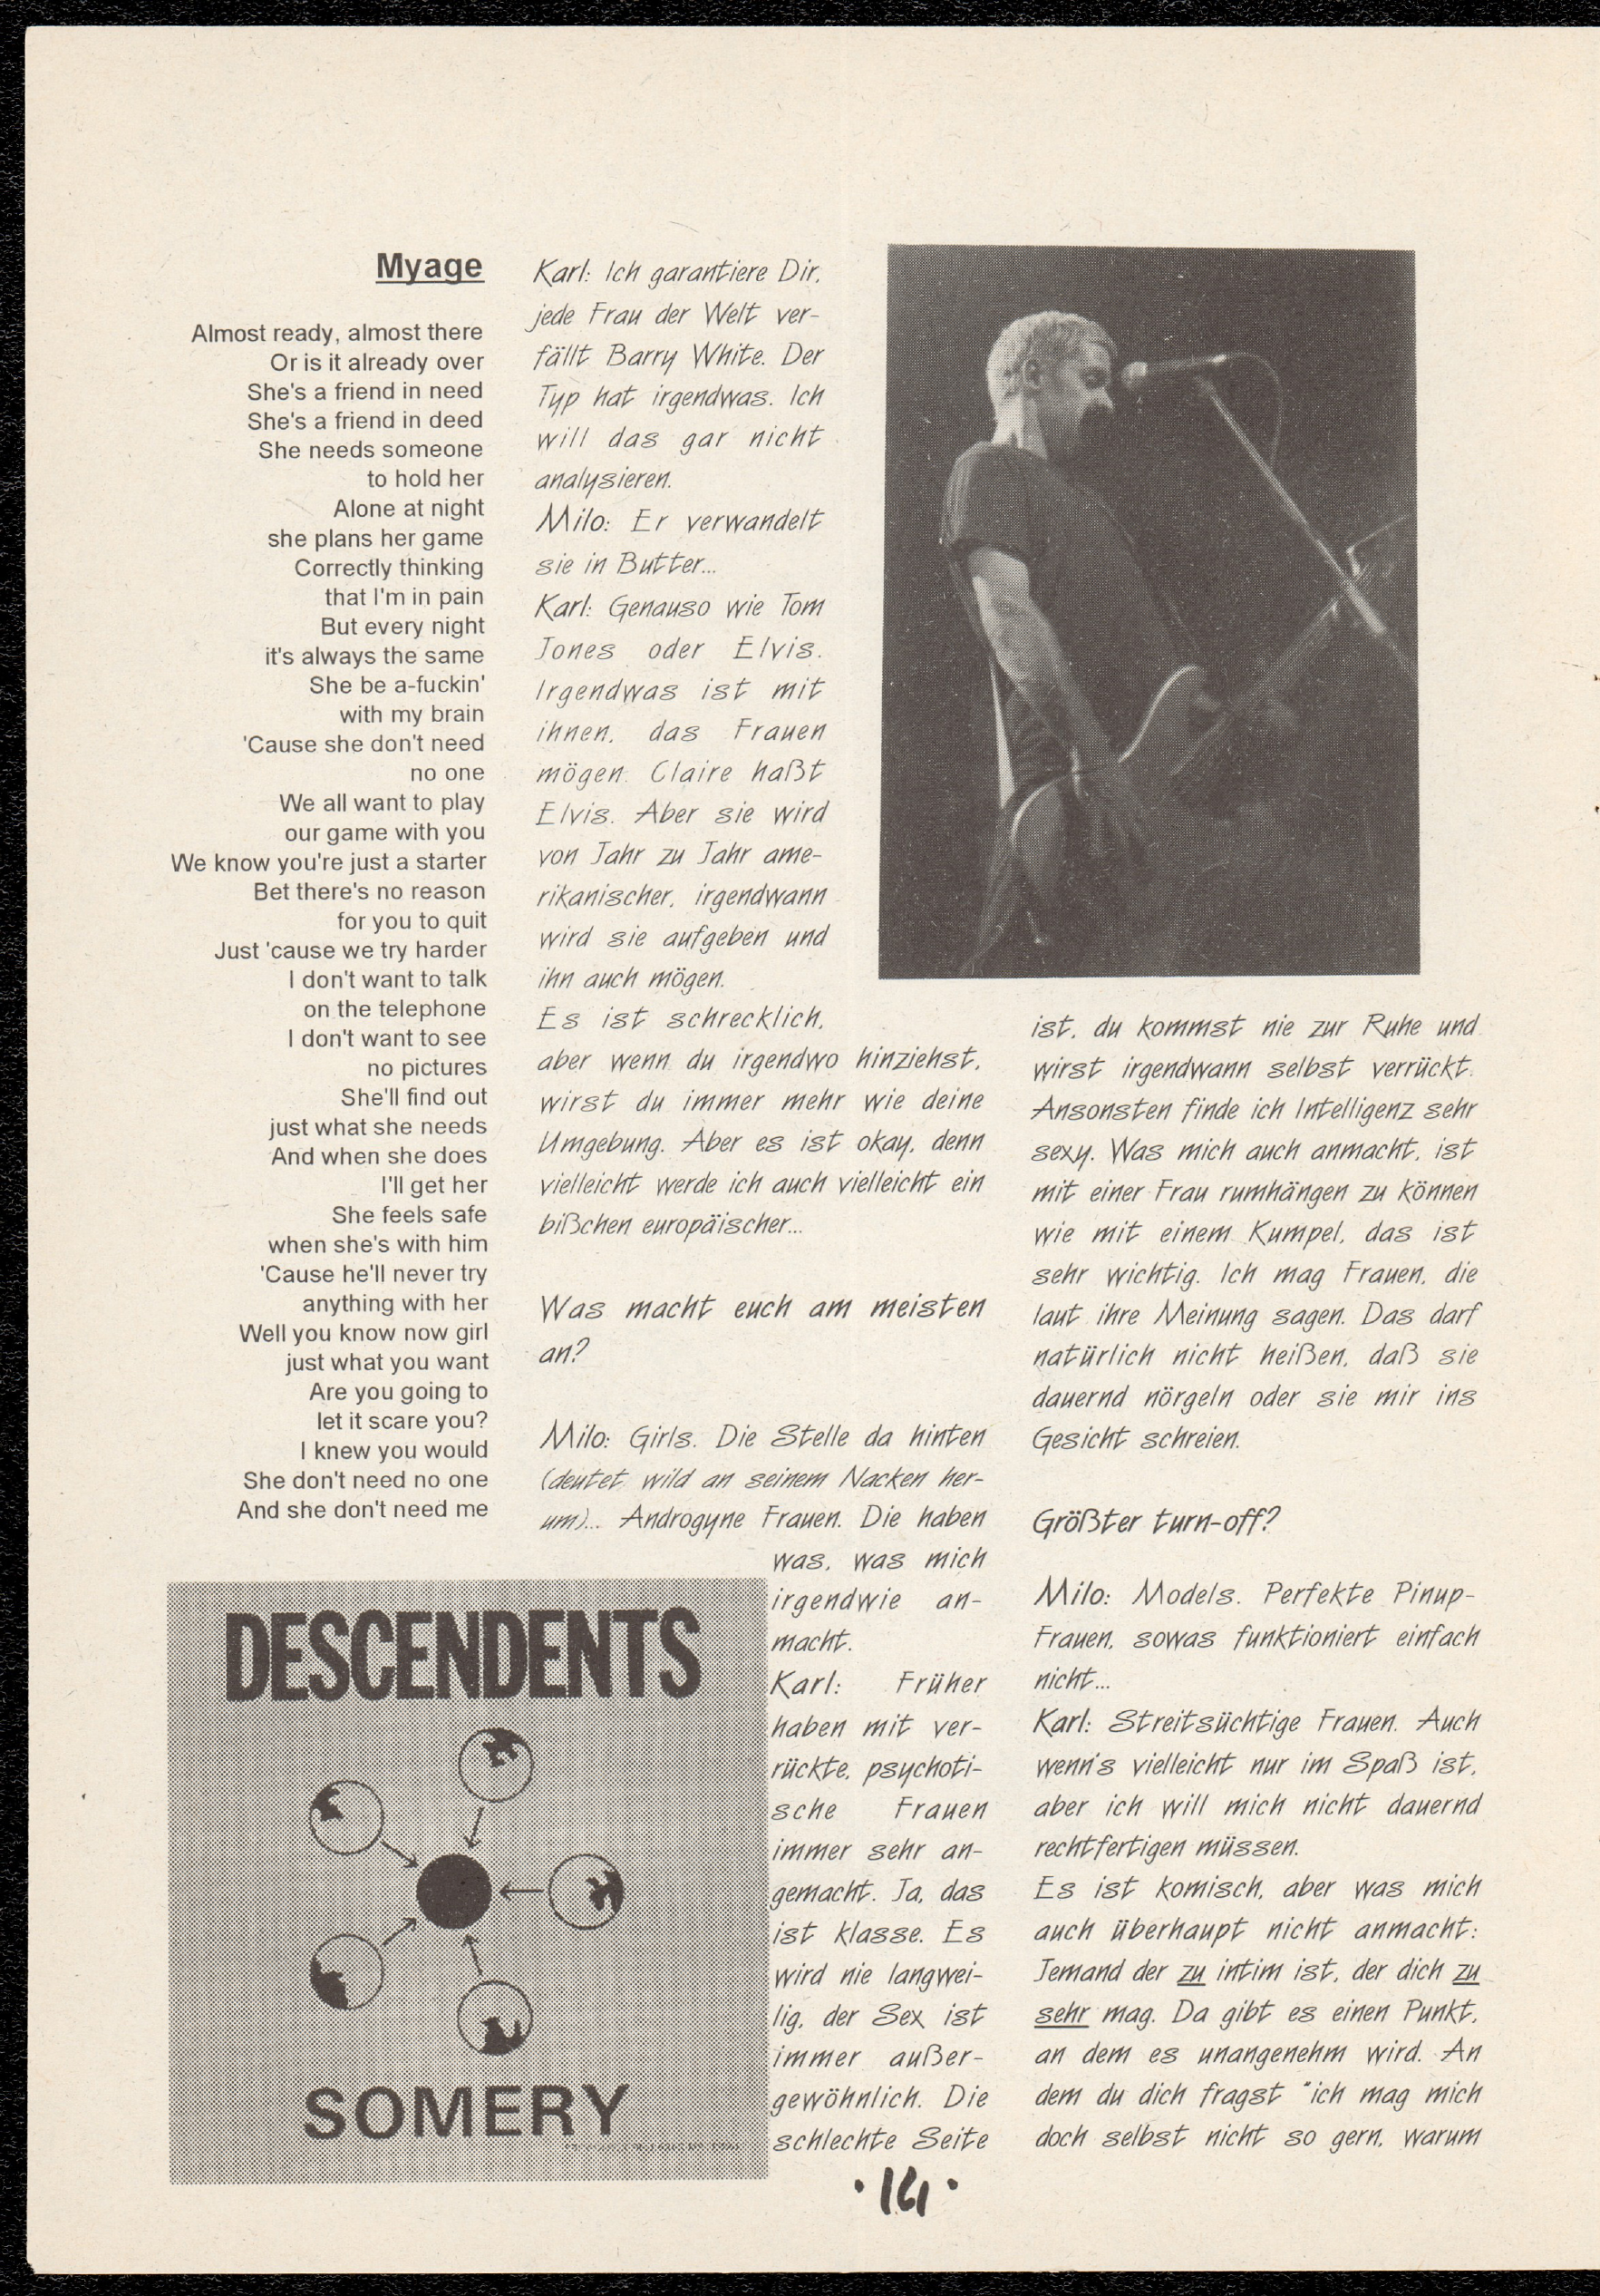 Myage
Almost ready, almost there
Or is it already over
She's a friend in need
She's a friend in deed
She needs someone
to hold her
Alone at night
she plans her game
Correctly thinking
that I'm in pain
But every night
it's always the same
She be a-fuckin'
with my brain
'Cause she don't need
no one
We all want to play
our game with you
We know you're just a starter
Bet there's no reason
for you to quit
Just 'cause we try harder
I don't want to talk
on the telephone
I don't want to see
no pictures
She'll find out
just what she needs
And when she does
I'll get her
She feels safe
when she's with him
'Cause he'll never try
anything with her
Well you know now girl
just what you want
Are you going to
let it scare you?
I knew you would
She don't need no one
And she don't need me
DESCENDENTS
SOMERY
Karl: Ich garantiere Dir,
jede Frau der Welt ver-
fällt Barry White. Der
Typ hat irgendwas. Ich
will das gar nicht
analysieren.
Milo: Er verwandelt
sie in Butter...
Karl: Genauso wie Tom
Jones oder Elvis.
Irgendwas ist mit
ihnen, das Frauen
mögen. Claire haßt
Elvis. Aber sie wird
von Jahr zu Jahr ame-
rikanischer, irgendwann
wird sie aufgeben und
ihn auch mögen.
Es ist schrecklich,
aber wenn du irgendwo hinziehst,
wirst du immer mehr wie deine
Umgebung. Aber es ist okay, denn
vielleicht werde ich auch vielleicht ein
bißchen europäischer...
Was macht euch am meisten
an?
Milo: Girls. Die Stelle da hinten
(deutet wild an seinem Nacken her-
um)... Androgyne Frauen. Die haben
was, was mich
irgendwie an-
macht.
Karl: Früher
haben mit ver-
rückte, psychoti-
sche Frauen
immer sehr an-
gemacht. Ja, das
ist klasse. Es
wird nie langwei-
lig, der Sex ist
immer außer-
gewöhnlich. Die
schlechte Seite
ist, du kommst nie zur Ruhe und
wirst irgendwann selbst verrückt.
Ansonsten finde ich Intelligenz sehr
sexy. Was mich auch anmacht, ist
mit einer Frau rumhängen zu können
wie mit einem Kumpel, das ist
sehr wichtig. Ich mag Frauen, die
laut ihre Meinung sagen. Das darf
natürlich nicht heißen, daß sie
dauernd nörgeln oder sie mir ins
Gesicht schreien.
Größter turn-off?
Milo: Models. Perfekte Pinup-
Frauen, sowas funktioniert einfach
nicht...
Karl: Streitsüchtige Frauen. Auch
wenn's vielleicht nur im Spaß ist,
aber ich will mich nicht dauernd
rechtfertigen müssen.
Es ist komisch, aber was mich
auch überhaupt nicht anmacht:
Jemand der zu intim ist, der dich zu
sehr mag. Da gibt es einen Punkt,
an dem es unangenehm wird. An
dem du dich fragst "ich mag mich
doch selbst nicht so gern, warum
·14·